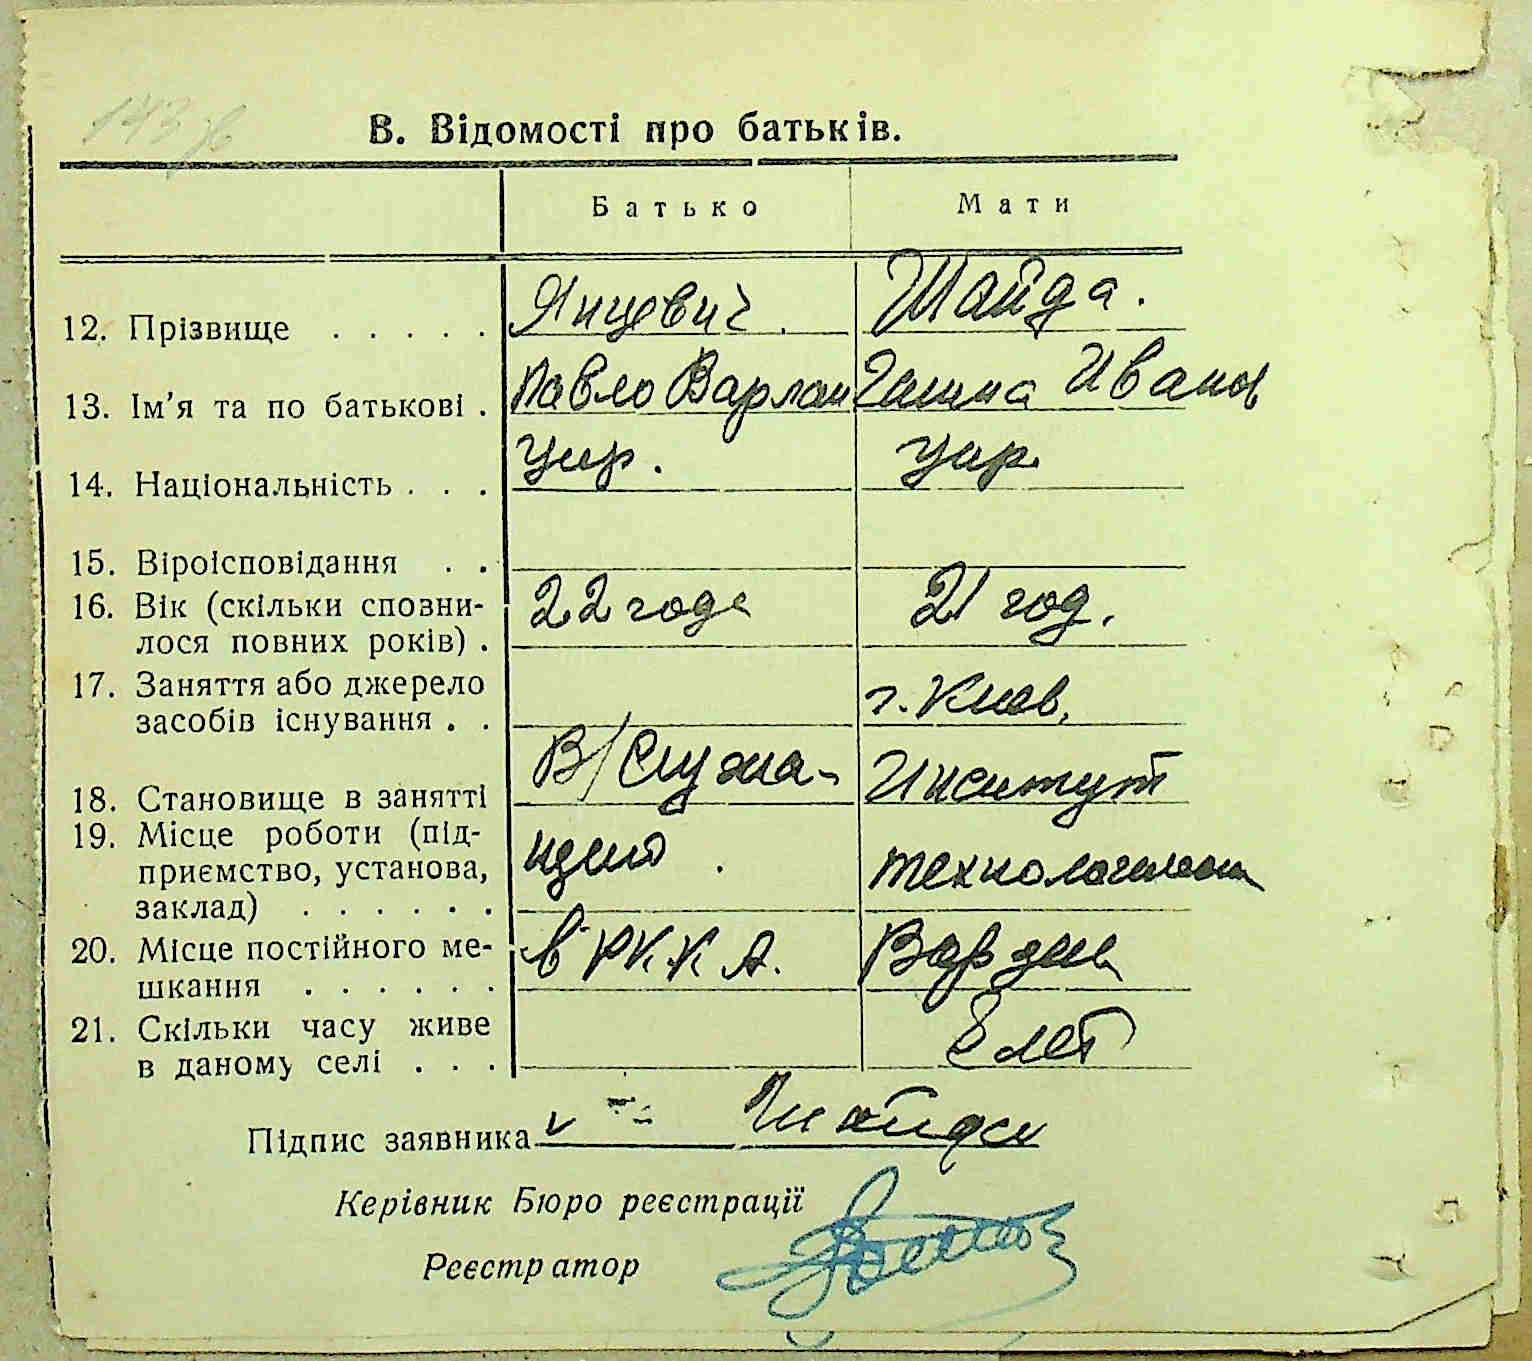 В. Відомості про батьків.
Батько Мати
12. Прізвище . . . . . Янцевич. Шайда.
13. Ім'я та по батькові . Павло Варлам Ганна Иванов
14. Національність . . . Укр. Укр.
15. Віроісповідання . .
16. Вік (скільки сповни- 22 года 21 год.
лося повних років) .
17. Заняття або джерело г. Киев,
засобів існування . .
В/Служа- Инситут
18. Становище в занятті
19. Місце роботи (під-
приємство, установа, щий. технологически
заклад) . . . . . .
20. Місце постійного ме- в РККА.
шкання . . . . . .
21. Скільки часу живе 8 лет
в даному селі . . .
Підпис заявника Шайда
Керівник Бюро реєстрації
Реєстратор